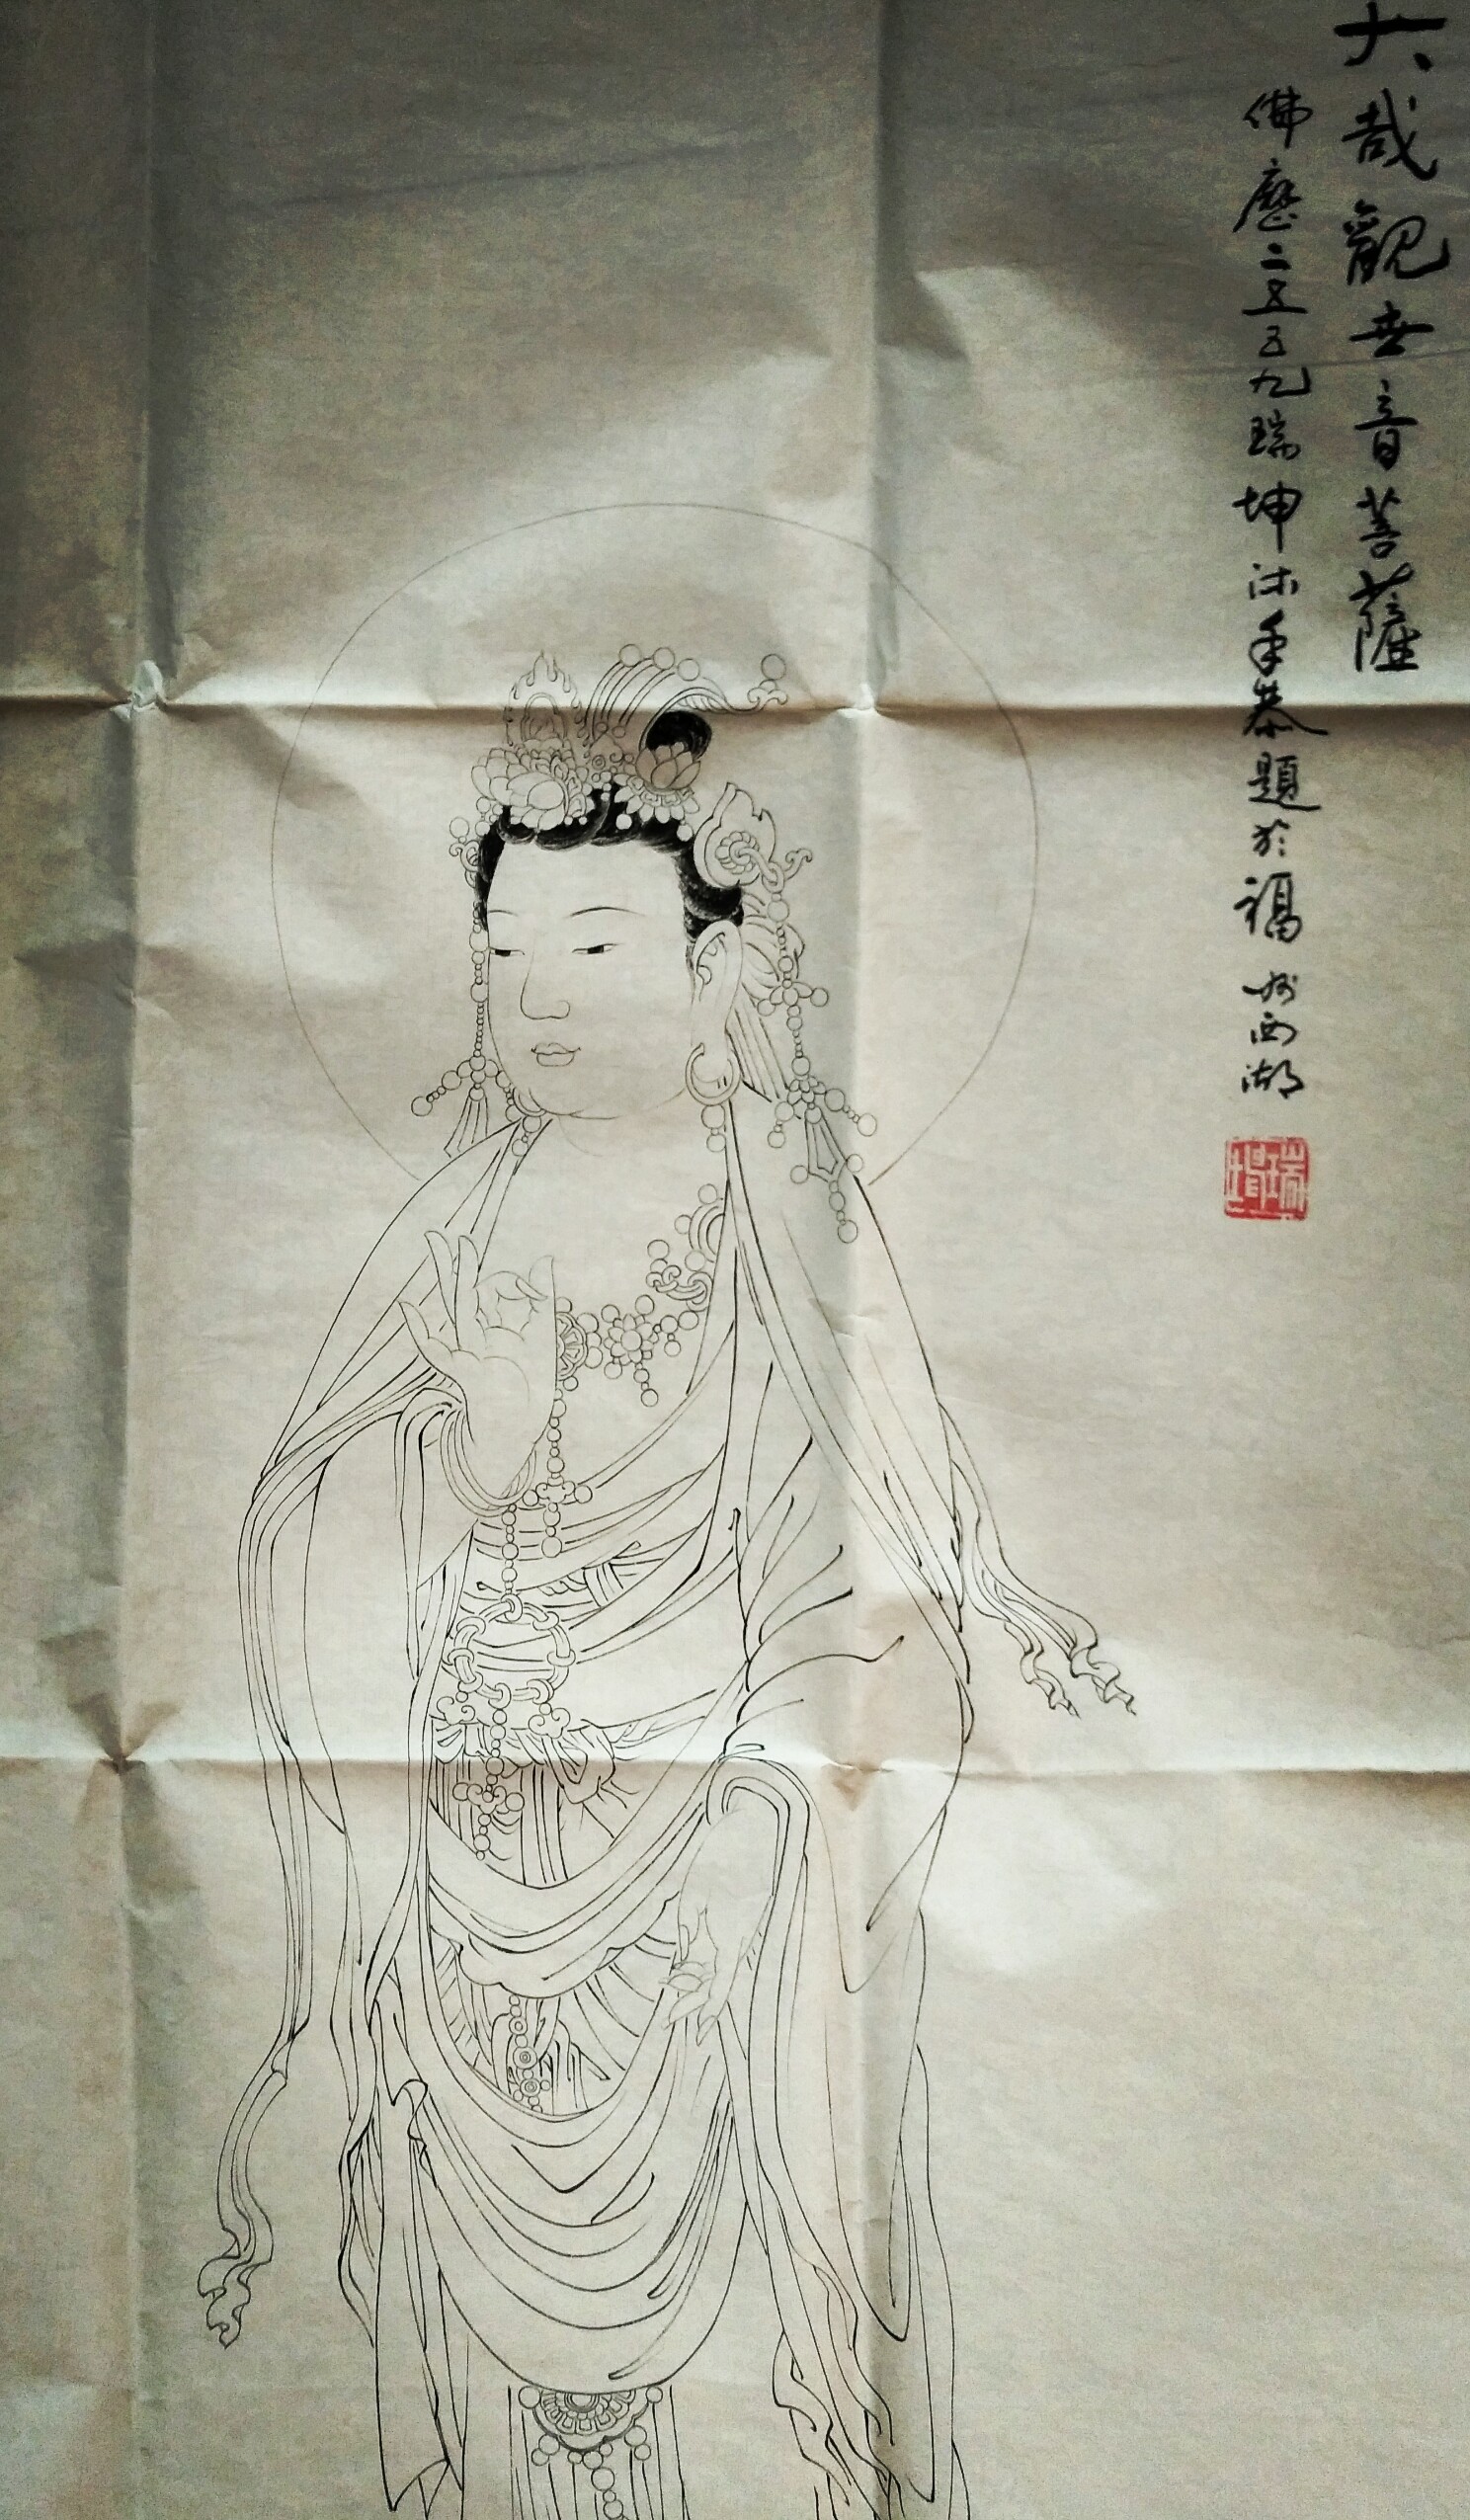 大哉觀世音菩薩
佛歷二五五九瑞坤沐手恭題於福州西湖